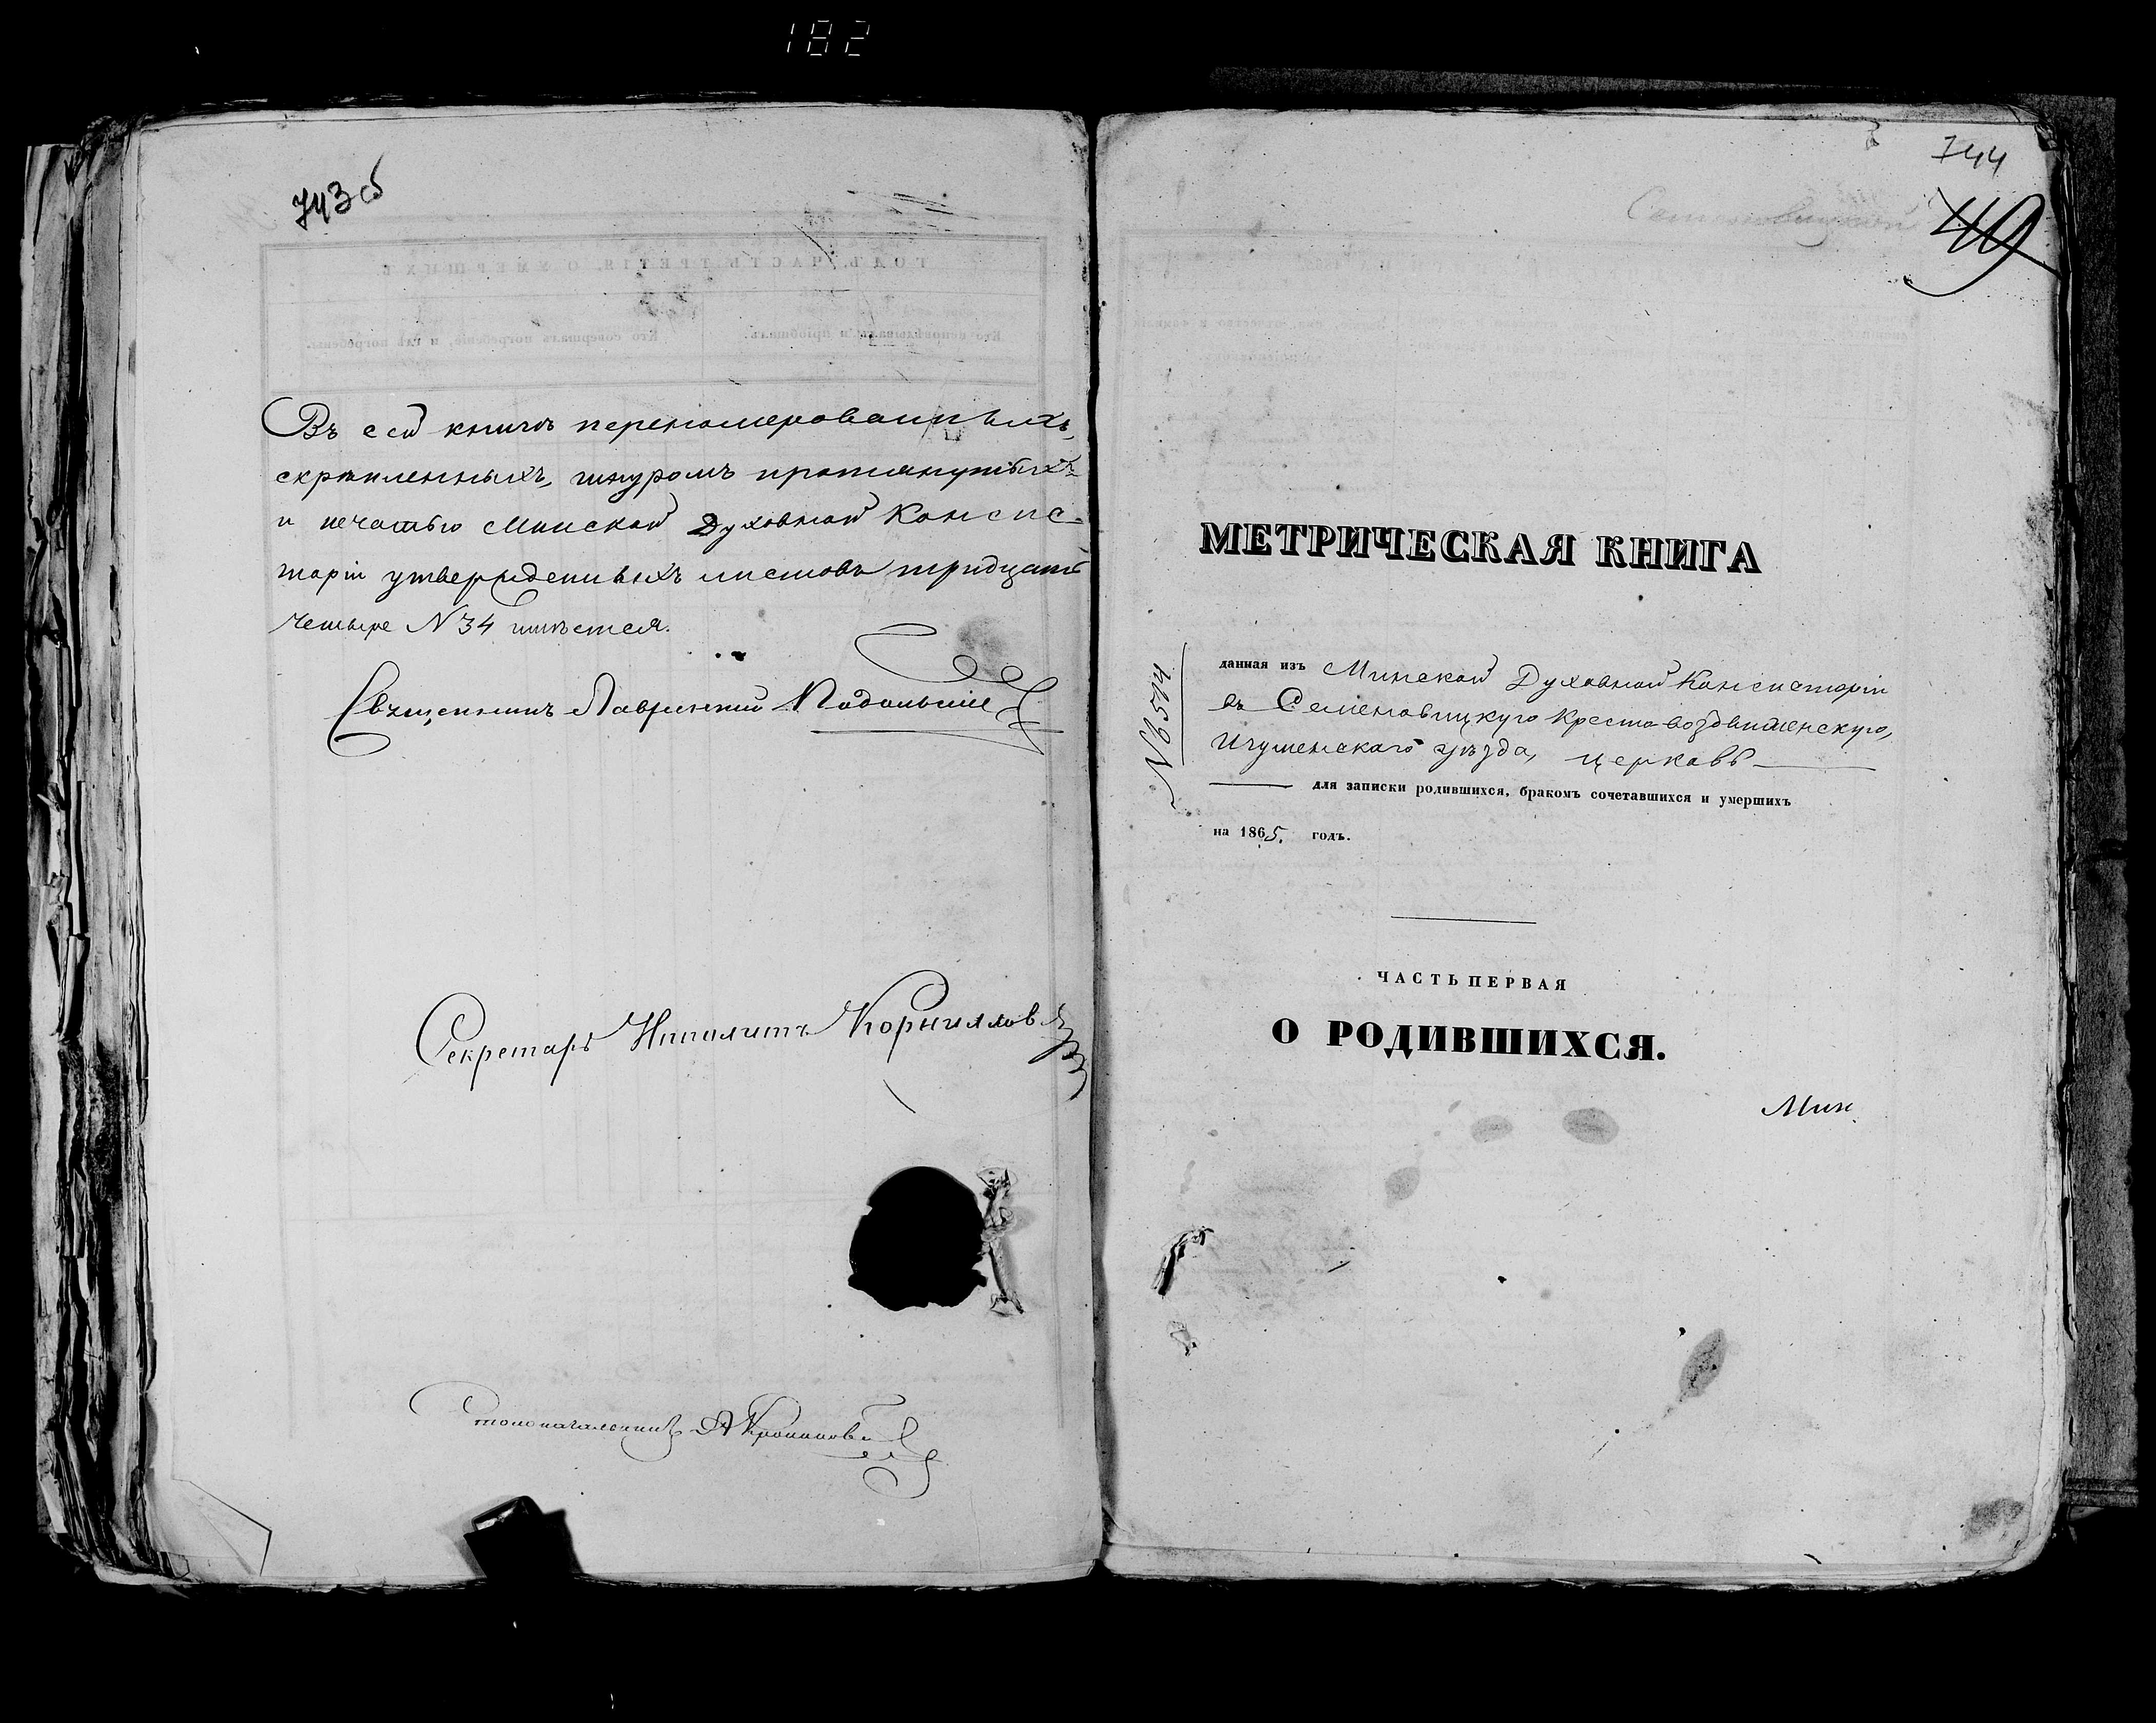 182
743 об
Въ сей книгѣ перенумерованныхъ,
скрѣпленныхъ, шнуромъ протянутыхъ
и печатью Минской Духовной Консис-
торіи утвержденныхъ листовъ тридцать
четыре N 34 имѣется.
Священникъ Лаврентій
Секретарь Ипполитъ Корниловъ
Столоначальникъ
744
49
Семеновицкой
МЕТРИЧЕСКАЯ КНИГА
№ 6514
данная изъ Минской Духовной Консисторіи
въ Семеновицкую Крестовоздвиженскую,
Игуменскаго уѣзда, церковь
для записки родившихся, бракомъ сочетавшихся и умершихъ
на 1865. годъ.
ЧАСТЬ ПЕРВАЯ
О РОДИВШИХСЯ.
Мин